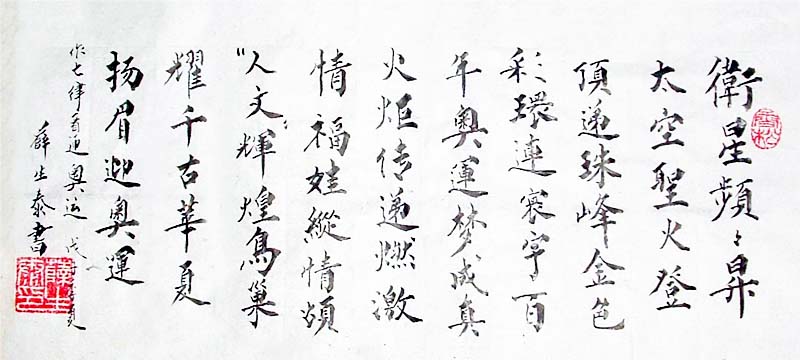 衛星頻々昇
太空聖火登
頂递珠峰金色
彩環連寰宇百
年奧運梦成真
火炬传递燃激
情福娃縱情頌
“人文”輝煌鳥巢
耀千古華夏
扬眉迎奧運
作七律首迎奧运 戊
薛生泰書